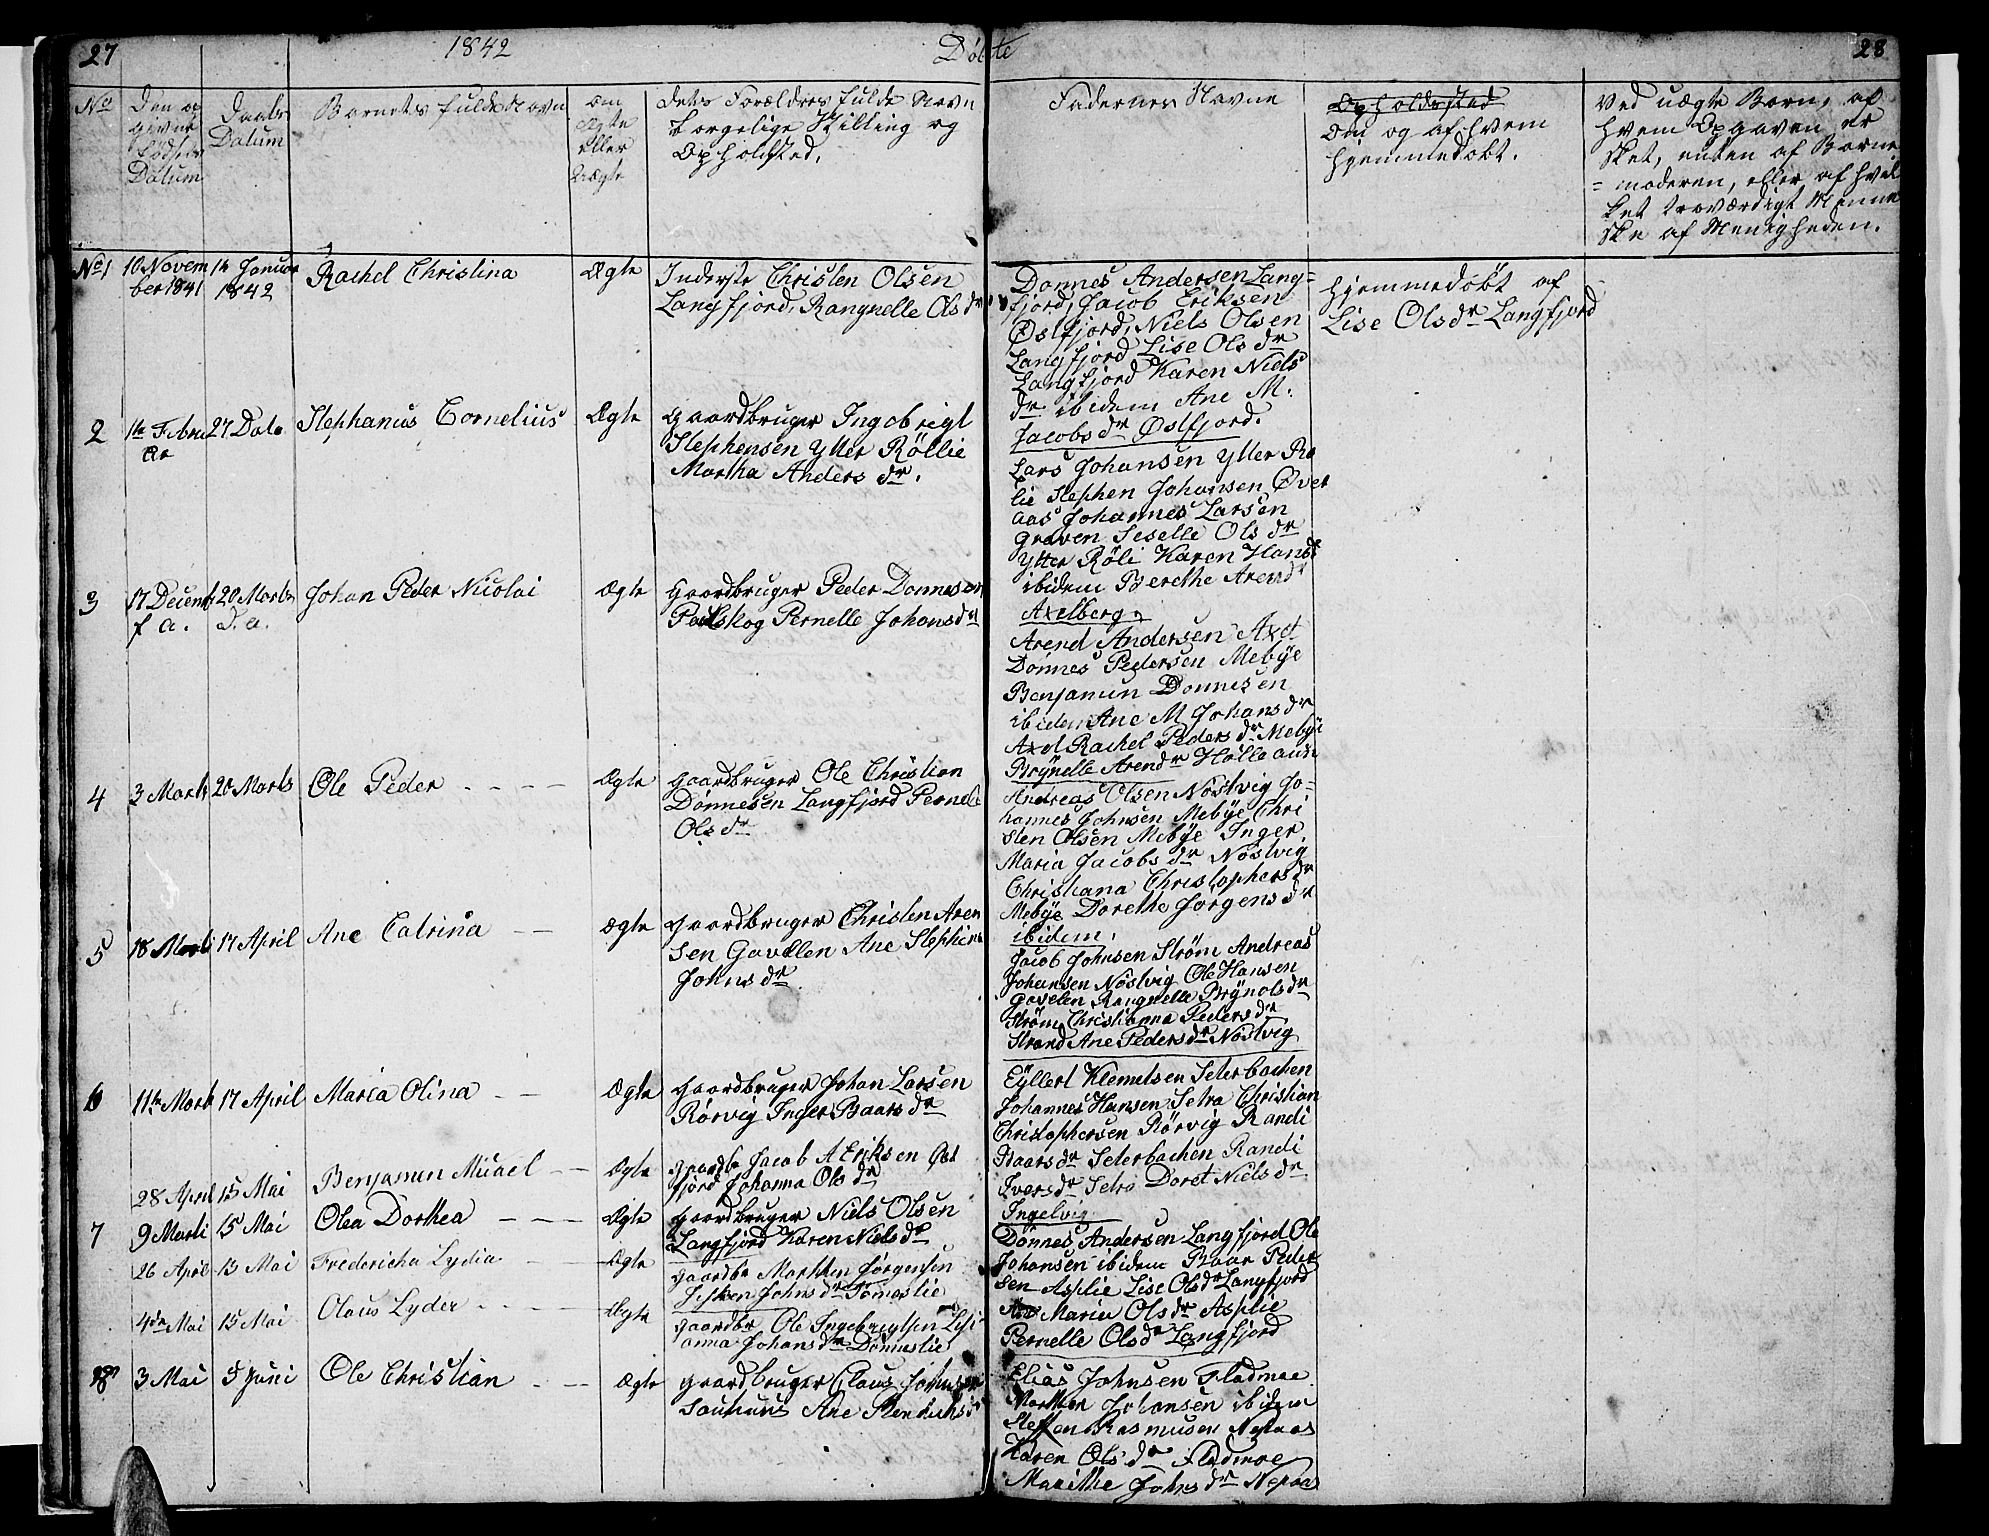 27 1842 Døbte 28
No
Den op
givne
Fødsels
Datum
Daabs
Datum
Barnets fulde Navn
om
Ægte
eller
Uægte
dets Forældres fulde Navne
borgelige Stilling og
Opholdsted.
Faddernes Navne
Opholdssted
Om og af hvem
hjemmedøbt.
Ved uægte Børn, af
hvem Opgaven er
sket, enten af Barne
= moderen, eller af hvil
ket troværdigt Menne
ske af Menigheden.
No 1
10 Novem
ber 1841
Januar
1842
Rachel Christina
Ægte
Inderste Christen Olsen
Langfjord, Rangnelle Ols dr
Donnes Andersen Lang=
fjord, Jacob Eriksen
Østfjord, Niels Olsen
Langfjord Lise Ols dr
Langfjord Karen Niels
dr ibidem Ane M.
Jacobs dr Østfjord.
hjemmedøbt af
Lise Ols dr Langfjord
2
Febru
ar
27 Dato
Stephanus Cornelius
Ægte
Gaardbruger Ingebrigt
Stephensen Ytter Röllie
Martha Anders dr.
Lars Johansen Ytter Rö
lie Stephen Johansen Över
aas Johannes Larsen
Graven Seselle Ols dr
Ytter Röli Karen Hans dr
ibidem Berethe Arend dr
Axelberg.
3
17 Decemb
f. a.
20 Marts
d. a.
Johan Peder Nicolai
Ægte
Gaardbruger Peder Donnesen
Parlskog Pernelle Johans dr
Arend Andersen Axel
Dönnes Pedersen Mebÿe
Benjamin Donnesen
ibidem Ane M Johans dr
Axel Rachel Peders dr Mebÿe
Brÿnelle Arend dr
4
3 Marts
20 Marts
Ole Peder
Ægte
Gaardbruger Ole Christian
Dönnesen Langfjord Pernele
Ols dr
Andreas Olsen Nöstvig Jo=
hannes Johnsen Mebÿe Chri
sten Olsen Mebÿe Inger
Maria Jacobs dr Nöstvig
Christiana Christophers dr
Mebÿe Dorethe Jörgens dr
ibidem.
5
18 Marts
17 April
Ane Catrina
Ægte
Gaardbruger Christen Aren
sen Gavelen Ane Stephine
Johns dr
Jacob Johnsen Ström Andreas
Johansen Nöstvig Ole Hansen
Gavelen Rangnelle Brÿnols dr
Ström Christianna Peders dr
Strand Ane Peders dr Nöstvig
6
11te Marts
17 April
Maria Olina
Ægte
Gaardbruger Johan Larsen
Rörvig Inger Baars dr
Eÿllert Klemetsen Seterbachen
Johannes Hansen Setra Christian
Christophersen Rörvig Randi
Baars dr Seterbachen Randi
Ivers dr Setra Doret Niels dr
Ingelvig
28 April
15 Mai
Benjamin Micael
Ægte
Gaardbr Jacob A Eriksen Øst
fjord Johanna Ols dr
7
9 Marts
15 Mai
Olea Dorthea
Ægte
Gaardbruger Niels Olsen
Langfjord Karen Niels dr
Dönnes Andersen Langfjord Ole
Johansen ibidem Baar Peder
sen Asplie Lise Ols dr Langfjord
Maria Ols dr Asplie
Pernelle Ols dr Langfjord
26 April
15 Mai
Fredericha Lydia
Ægte
Gaardbr Morthen Jørgensen
Johns dr
4de Mai
15 Mai
Olaus Lyder
Ægte
Gaardbr Ole Ingebrigtsen
anna Johans dr
8
3 Mai
5 Juni
Ole Christian
Ægte
Gaardbruger Claus Johnsen
Ane
Elias Johnsen Fladmoe
Morthen Johansen ibidem
Steffen Rasmusen Nesaas
Karen Ols dr Fladmoe
Marithe Johns dr Nesaas